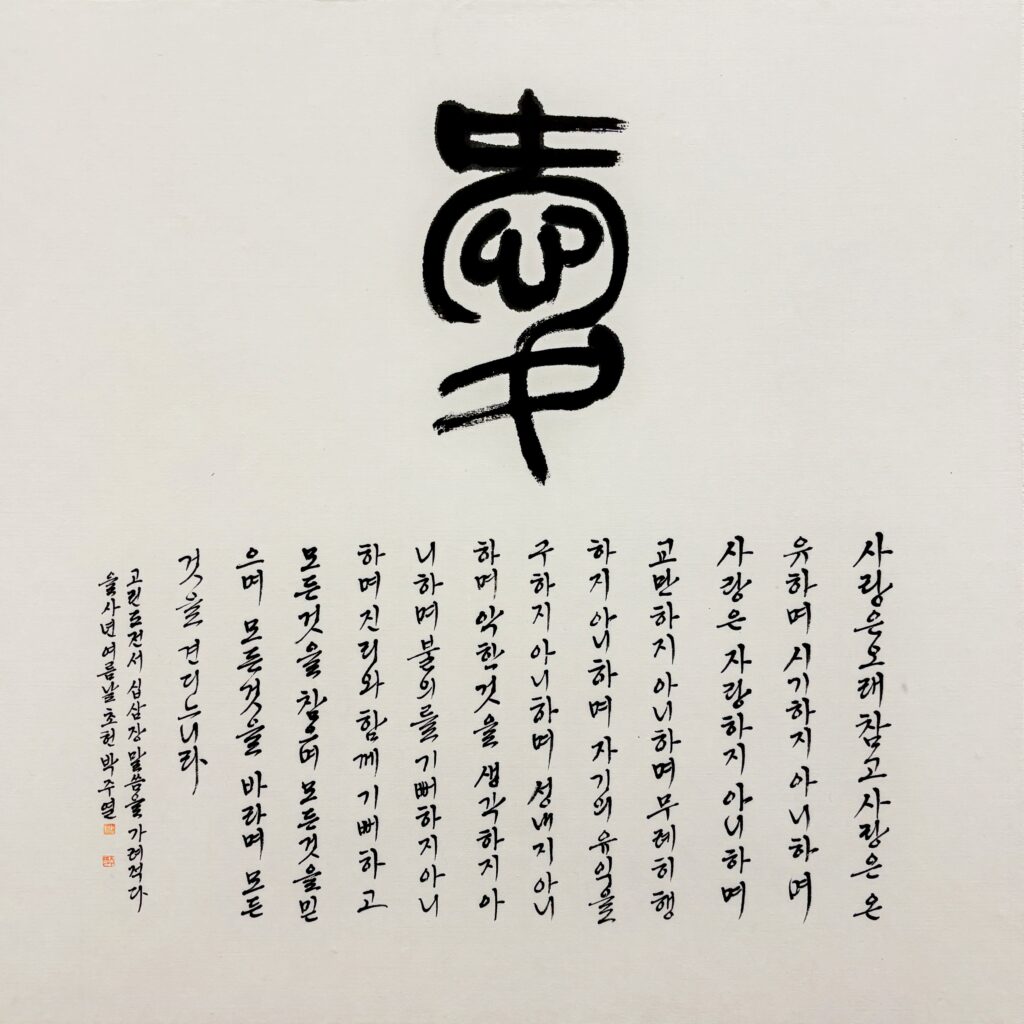 愛
사랑은 오래 참고 사랑은 온
유하며 시기하지 아니하며
사랑은 자랑하지 아니하며
교만하지 아니하며 무례히 행
하지 아니하며 자기의 유익을
구하지 아니하며 성내지 아니
하며 악한것을 생각하지 아
니하며 불의를 기뻐하지 아니
하며 진리와 함께 기뻐하고
모든것을 참으며 모든것을 믿
으며 모든것을 바라며 모든
것을 견디느니라
고린도전서 십삼장 말씀을 가려적다
을사년 여름날 초헌 박주열